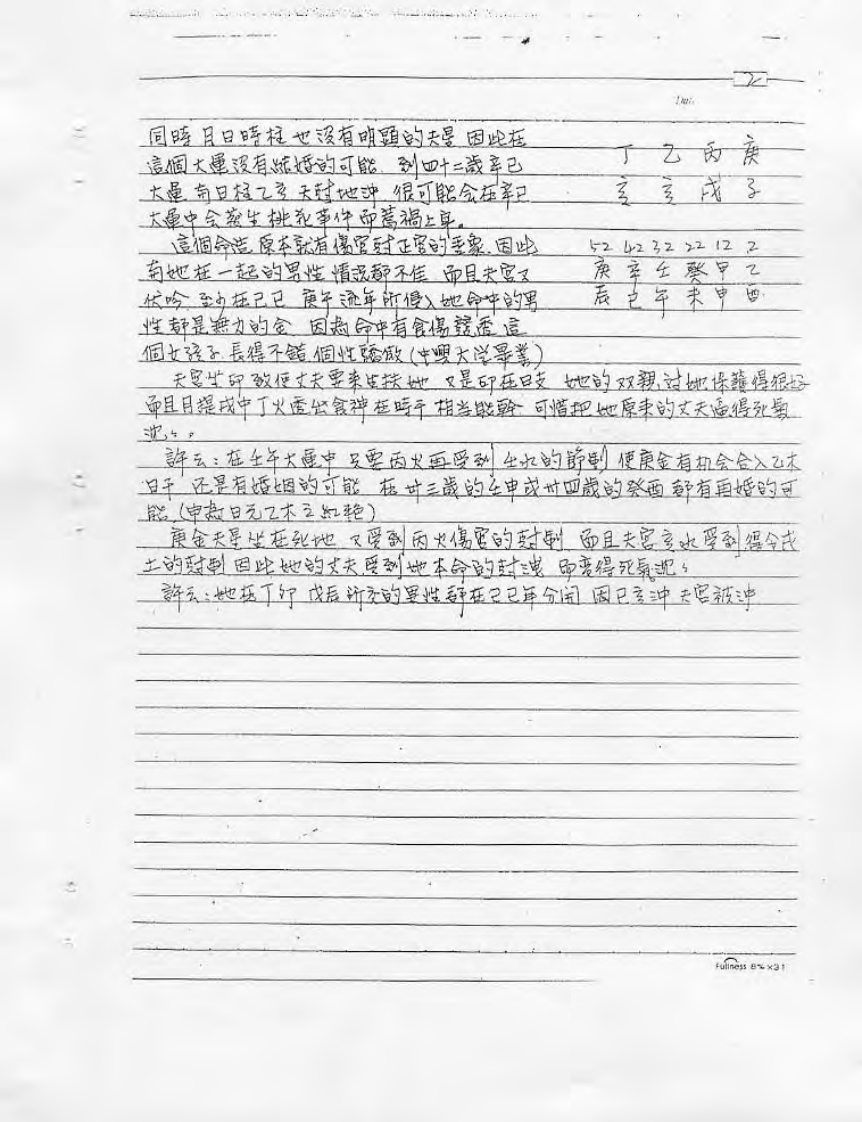 2
Date
同時 月日時柱 也沒有明顯的夫星 因此在
這個大運沒有結婚的可能 到四十二歲辛已
大運 與日柱乙亥 天尅地沖 很可能会在辛已
大運中会發生桃花事件而惹禍上身。
丁 乙 丙 庚
亥 亥 戌 子
這個命造 原本就有傷官尅正官的 因此
與她在一起的男性 情況都不佳 而且夫宮又
伏吟 至少在己已 庚午 流年所侵入她命中的男
性都是無力的金 因為命中有食傷 這
個女孩子 長得不錯 個性驕傲 (中興大学畢業)
52 42 32 22 12 2
庚 辛 壬 癸 甲 乙
辰 已 午 未 申 酉
夫宮坐印 致使丈夫要來生扶她 又是印在日支 她的双親 對她保護得很好
而且月提戌中丁火透出食神在時干 相当能幹 可惜把她原來的丈夫逼得死氣
沈々。
許云:在壬午大運中 只要丙火再受到 壬水的節制 使庚金有机会合入乙木
日干 还是有婚姻的可能 在卅三歲的壬申或卅四歲的癸酉 都有再婚的可
能 (申為日元乙木之紅艳)
庚金夫星坐在死地 又受到丙火傷官的尅制 而且夫宮亥水受到得令戌
土的尅制 因此她的丈夫受到她本命的尅洩 而变得死氣沈々
許云:她在丁卯 戊辰 所交的異性 都在己已年分開 因已亥沖 夫宮被沖
Fullness 8¾ x 31